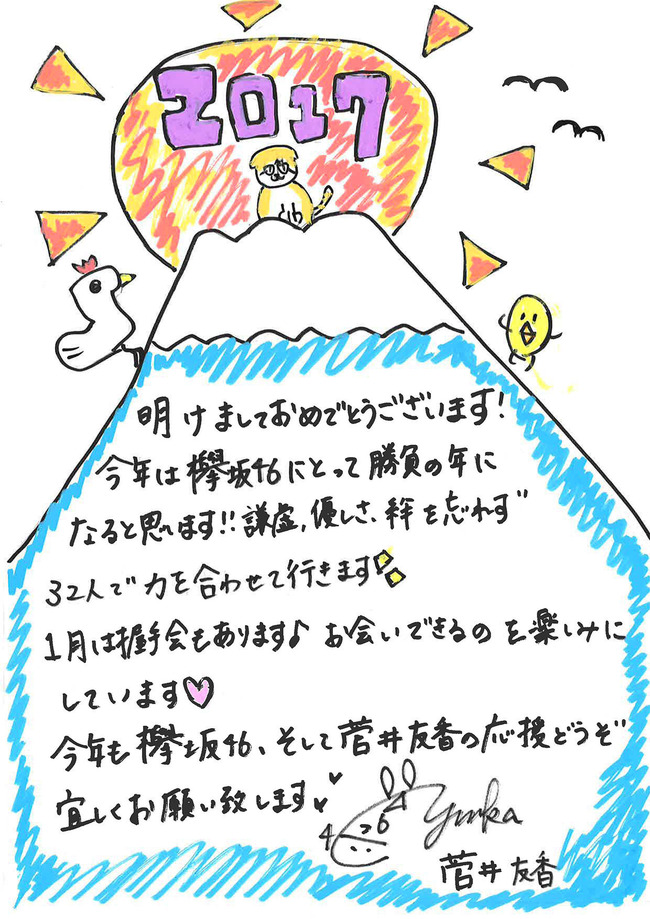 2017
明けましておめでとうございます!
今年は欅坂46にとって勝負の年に
なると思います!!謙虚,優しさ、絆を忘れず
32人で力を合わせて行きます
1月は握手会もあります♪ お会いできるのを楽しみに
しています♡
今年も欅坂46、そして菅井友香の応援どうぞ
宜しくお願い致します
46
Yuuka
菅井友香